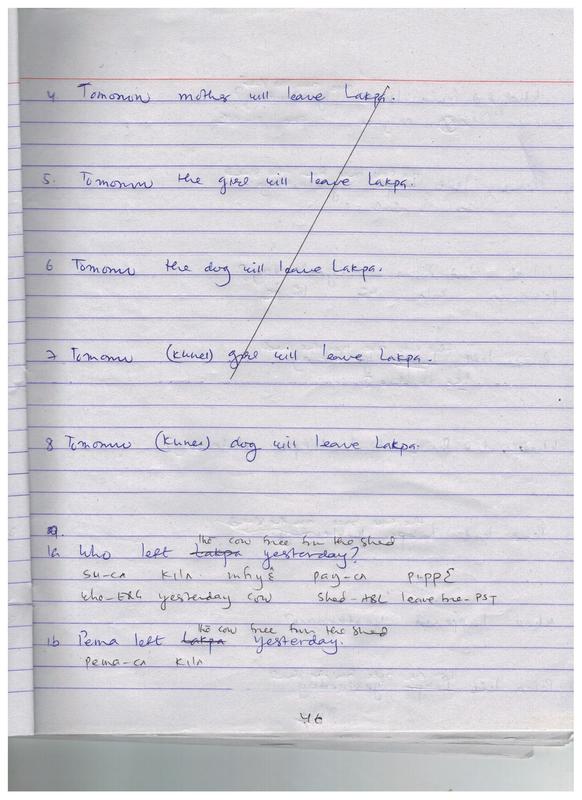 4 Tomorrow mother will leave Lakpa.
5. Tomorrow the girl will leave Lakpa.
6 Tomorrow the dog will leave Lakpa.
7 Tomorrow (Kunes) girl will leave Lakpa.
8 Tomorrow (Kunes) dog will leave Lakpa.
9.
the cow free from the shed
1a Who left Lakpa yesterday?
su-ʌ kilʌ
who-ERG yesterday cow shed-ABL leave free-PST
the cow free from the shed
1b Pema left Lakpa yesterday.
pema- kilʌ
46